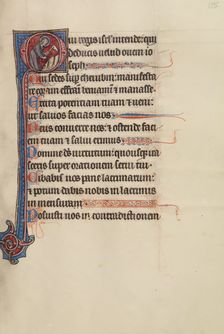 Qui regis isrl intende: qui
deducis uelud ouem io
seph.
Qui sedes sup cherubin: manifesta
re coram effraim beniamin & manasse.
Excita potentiam tuam & ueni:
ut saluos facias nos.
Deus conuerte nos: & ostende faci
em tuam & salui erimus.
Domine deus uirtutum: quousque
sceris super orationem serui tui.
Cibabis nos pane lacrimarum:
& potum dabis nobis in lacrimis
in mensuram.
Posuisti nos in contradictionem